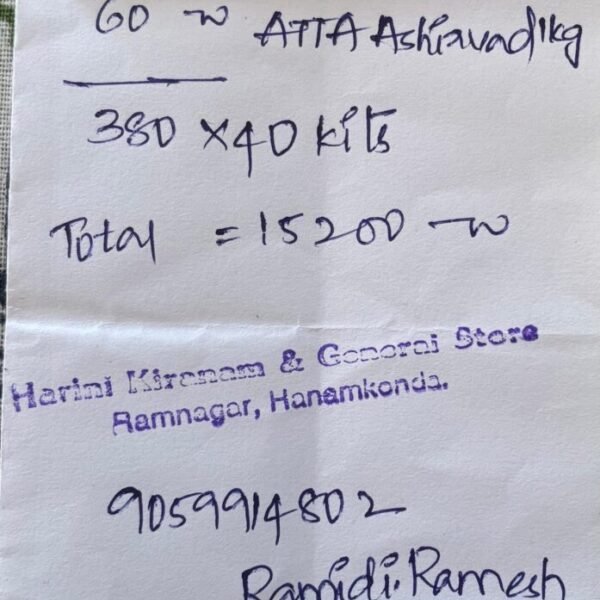 60 ~w ATTA Ashiravad 1kg
380 × 40 kits
Total = 15200 ~w
Harini Kiranam & General Store
Ramnagar, Hanamkonda.
9059914802
Ramidi. Ramesh